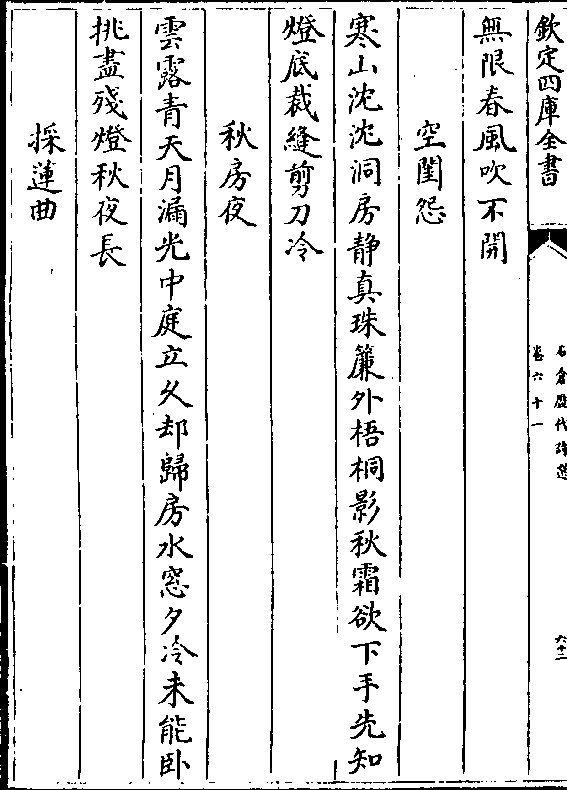 欽定四庫全書
石倉歷代詩選
卷六十一
六十二
無限春風吹不開
空閨怨
寒山沈沈洞房静真珠簾外梧桐影秋霜欲下手先知
燈底裁縫剪刀冷
秋房夜
雲露青天月漏光中庭立久却歸房水窓夕冷未能卧
挑盡殘燈秋夜長
採蓮曲